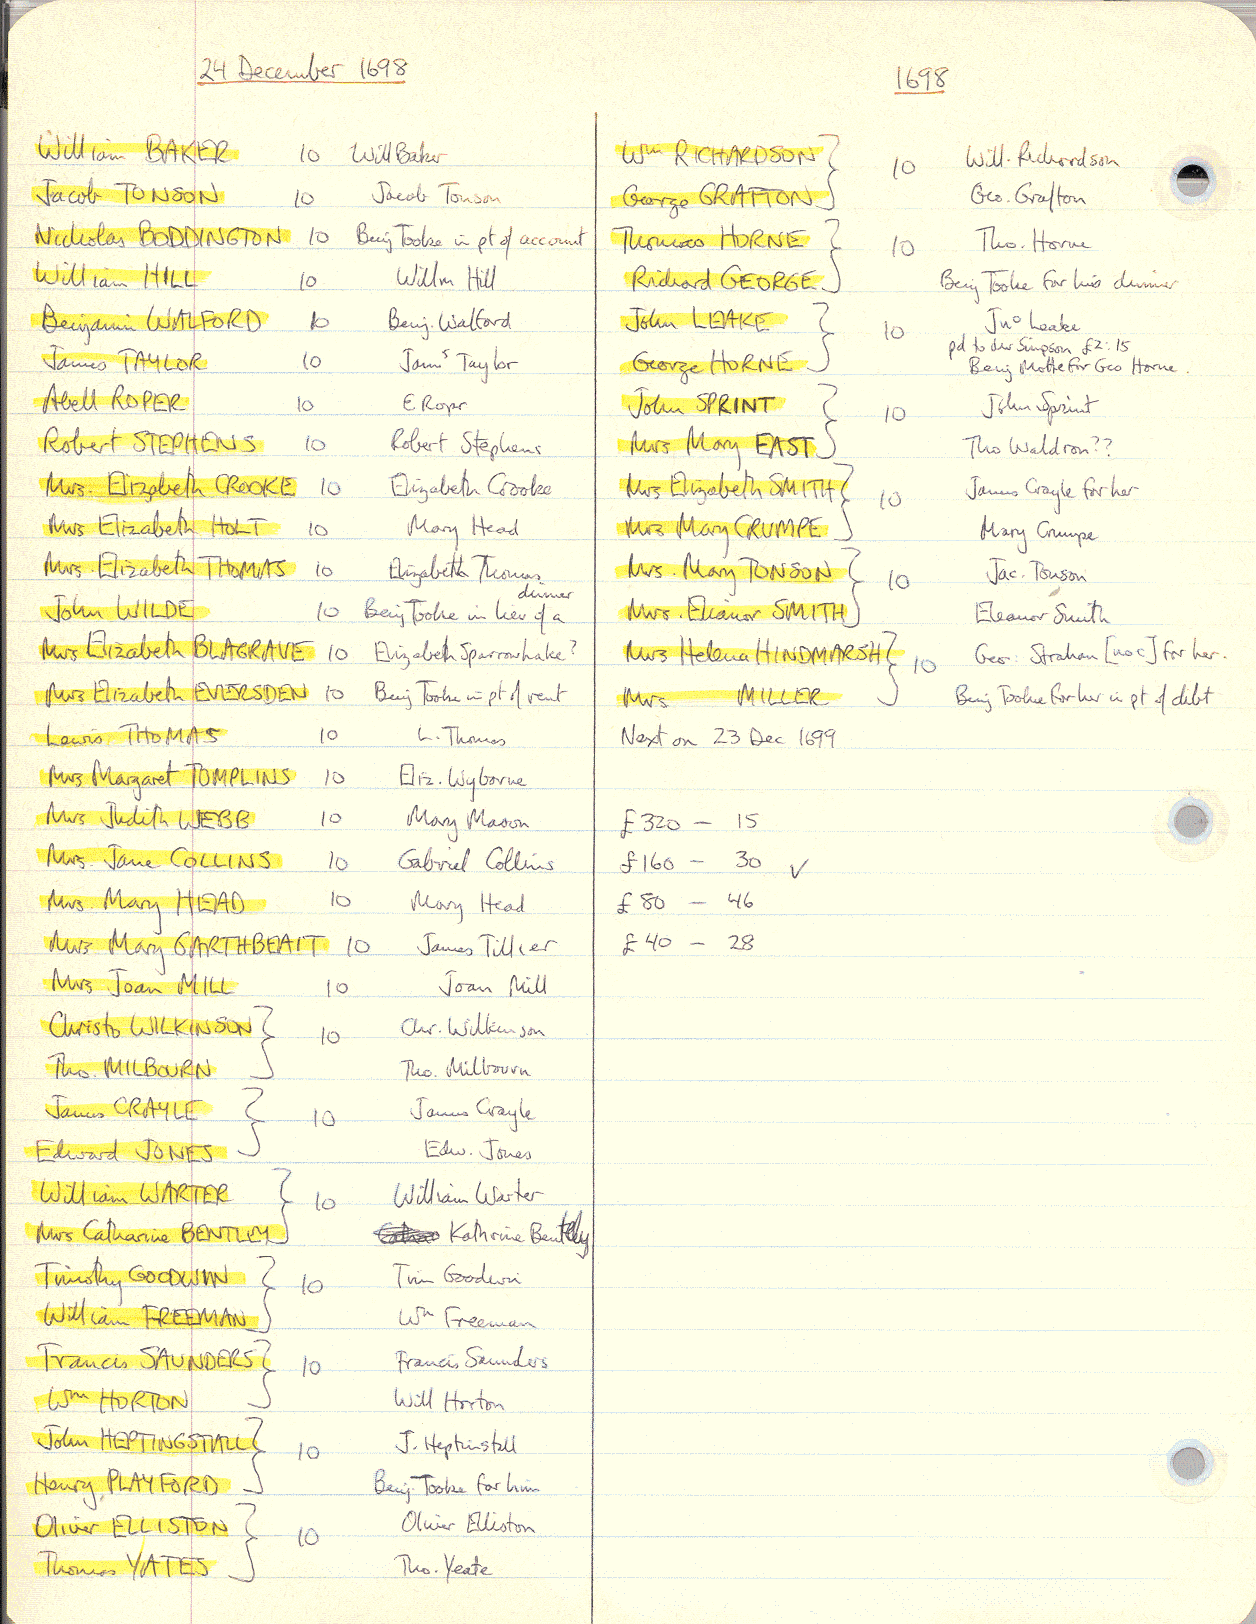 24 December 1698
William BAKER 10 Will Baker
Jacob TONSON 10 Jacob Tonson
Nicholas BODDINGTON 10 Benj Tooke in pt of account
William HILL 10 Willm Hill
Benjamin WALFORD 10 Benj. Walford
James TAYLOR 10 Jams Taylor
Abell ROPER 10 E Roper
Robert STEPHENS 10 Robert Stephens
Mrs. Elizabeth CROOKE 10 Elizabeth Crooke
Mrs Elizabeth HOLT 10 Mary Head
Mrs. Elizabeth THOMAS 10 Elizabeth Thomas
John WILDE 10 Benj Tooke in liev of a dinner
Mrs Elizabeth BLAGRAVE 10 Elizabeth Sparrowhake?
Mrs Elizabeth EVERSDEN 10 Benj Tooke in pt of rent
Lewis THOMAS 10 L. Thomas
Mrs Margaret TOMPLINS 10 Eliz. Wyborne
Mrs Judith WEBB 10 Mary Mason
Mrs. Jane COLLINS 10 Gabriel Collins
Mrs. Mary HEAD 10 Mary Head
Mrs Mary GARTHBEAIT 10 James Tillier
Mrs Joan MILL 10 Joan Mill
Christo WILKINSON 10 Chr. Wilkinson
Tho. MILBOURN Tho. Milbourn
James CRAYLE 10 James Crayle
Edward JONES Edw. Jones
William WARTER 10 William Warter
Mrs Catharine BENTLEY Kathrine Bentley
Timothy GOODWIN 10 Tim Goodwin
William FREEMAN Wm Freeman
Francis SAUNDERS 10 Francis Saunders
Wm HORTON Will Horton
John HEPTINGSTALL 10 J. Heptinstall
Henry PLAYFORD Benj. Tooke for him
Oliver ELLISTON 10 Oliver Elliston
Thomas YATES Tho. Yeate
1698
Wm RICHARDSON 10 Will. Richardson
George GRAFTON Geo. Grafton
Thomas HORNE 10 Tho. Horne
Richard GEORGE Benj Tooke for his dinner
John LEAKE 10 Jno Leake
pd to Mr Simpson £2:15
George HORNE Benj Motte for Geo Horne.
John SPRINT 10 John Sprint
Mrs Mary EAST Tho Waldron??
Mrs Elizabeth SMITH 10 James Crayle for her
Mrs Mary CRUMPE Mary Crumpe
Mrs. Mary TONSON 10 Jac. Tonson
Mrs. Eleanor SMITH Eleanor Smith
Mrs Helena HINDMARSH 10 Geo: Strahan [no c] for her.
Mrs MILLER Benj Tooke for her in pt of debt
Next on 23 Dec 1699
£320 - 15
£160 - 30 ✓
£80 - 46
£40 - 28